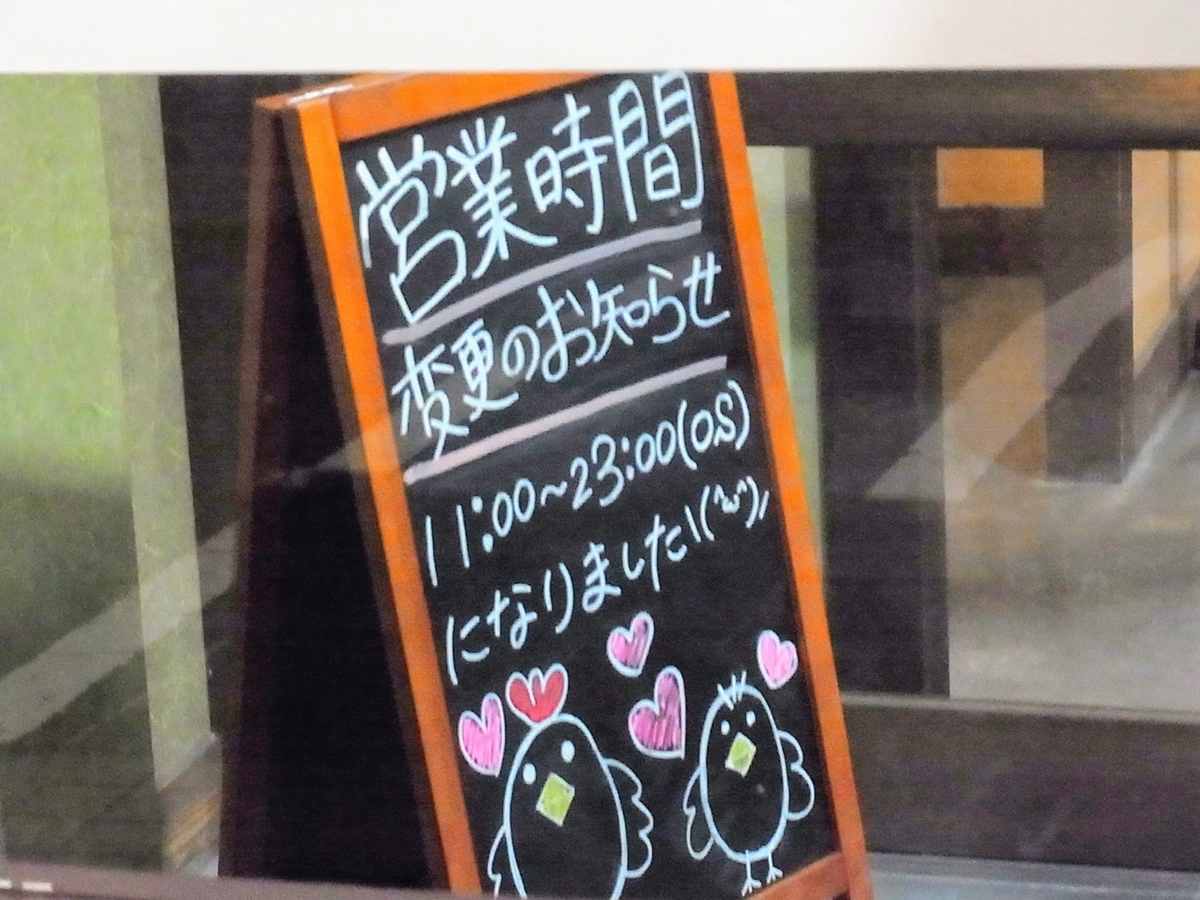 営業時間
変更のお知らせ
11:00~23:00(OS)
になりました!(^ω^)/